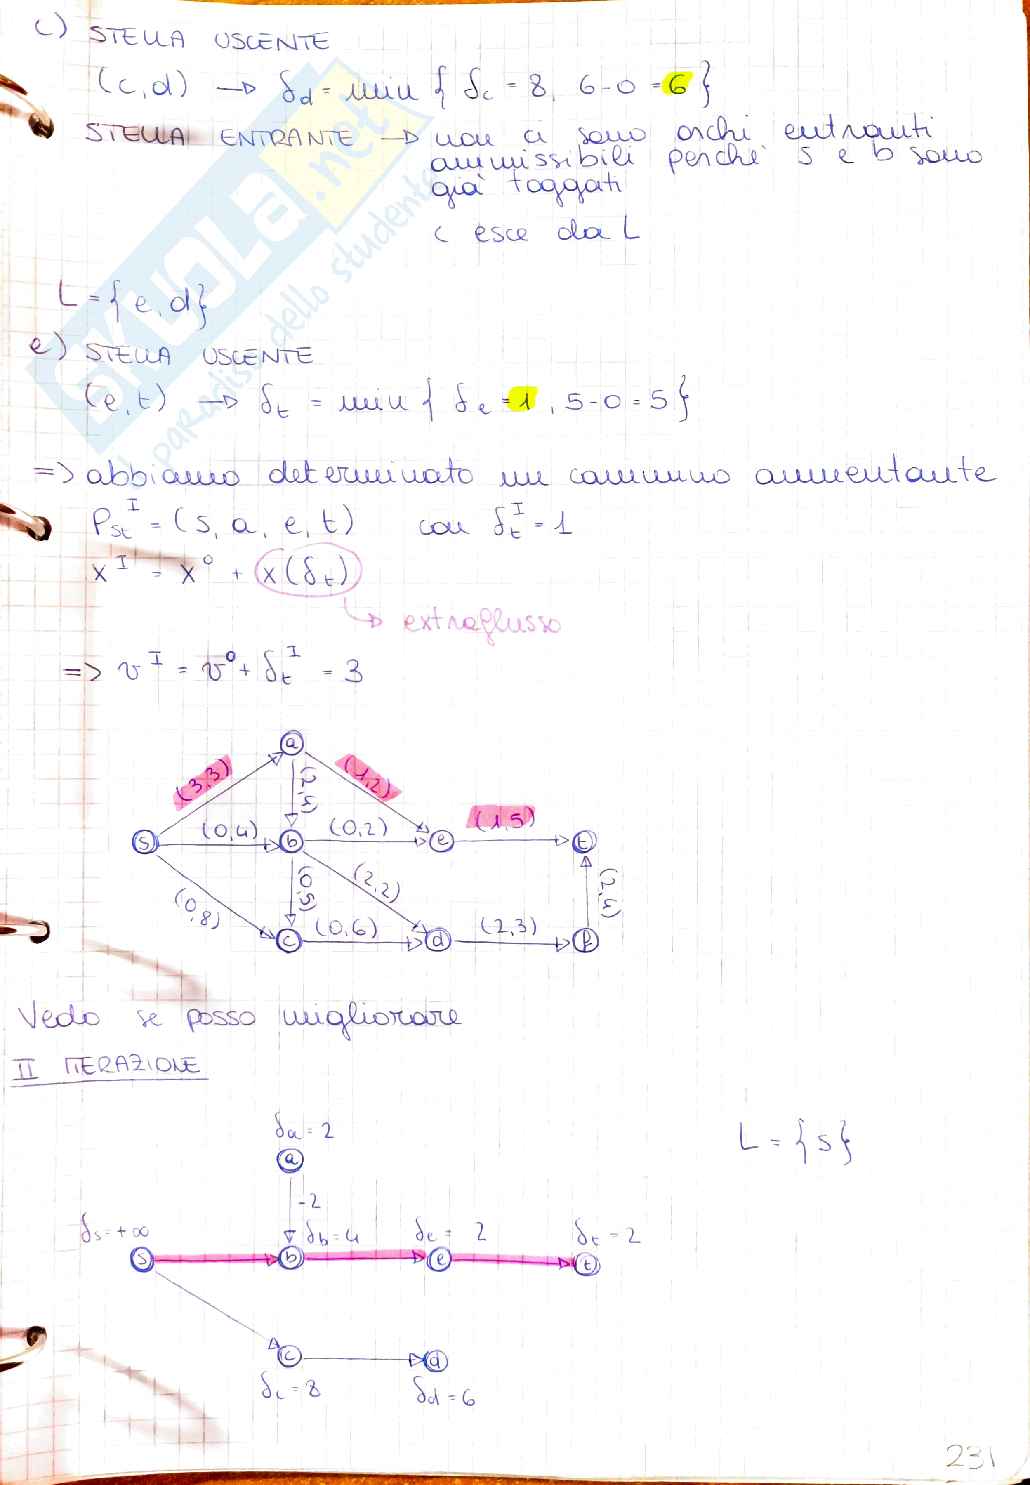 c) STELLA USCENTE
(c,d) → δd = min { δc = 8, 6-0 = 6 }
STELLA ENTRANTE → non ci sono archi entranti
ammissibili perché s e b sono
già taggati
c esce da L
L = { e, d }
e) STELLA USCENTE
(e,t) → δt = min { δe = 1, 5-0 = 5 }
=> abbiamo determinato un cammino aumentante
Pst^I = (s, a, e, t) con δt^I = 1
x^I = x^0 + x(δt)
→ extraflusso
=> v^I = v^0 + δt^I = 3
a
(3,3) (2,5) (1,2)
s (0,4) b (0,2) e (1,5) t
(0,8) (0,5) (2,2) (2,4)
c (0,6) d (2,3) f
Vedo se posso migliorare
II ITERAZIONE
δa = 2
L = { s }
a
-2
δs = +∞ δb = 4 δe = 2 δt = 2
s b e t
c d
δc = 8 δd = 6
231
SKUOLA.net
il paradiso dello studente